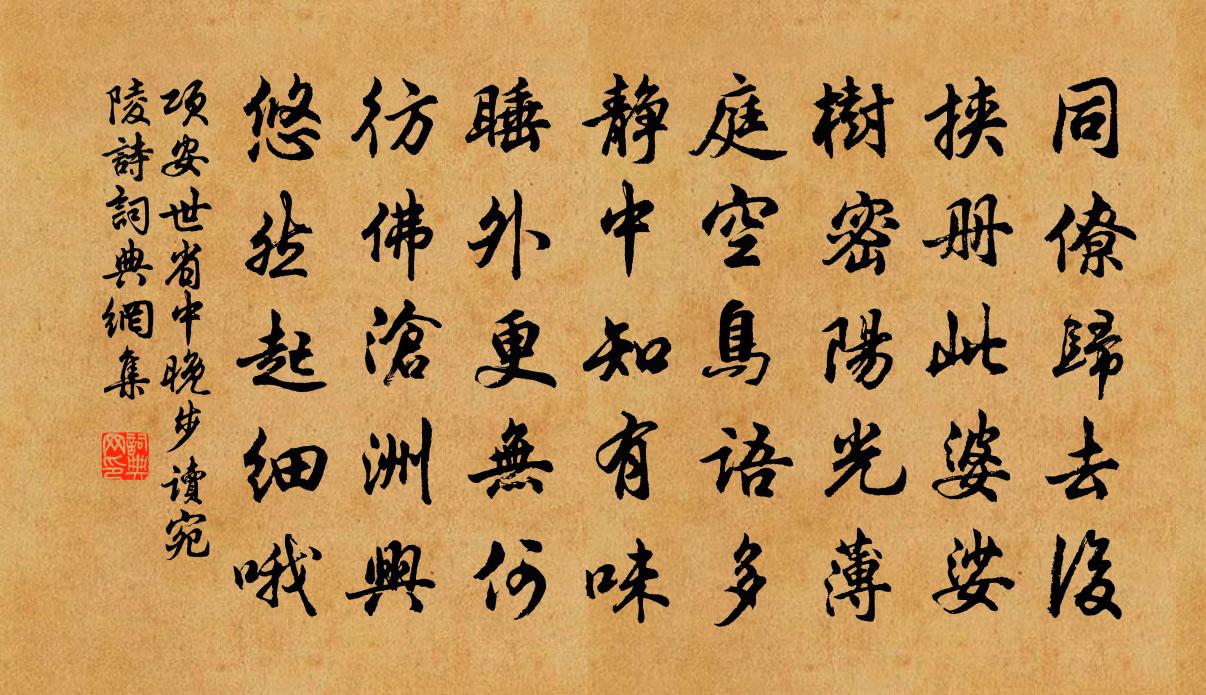 同僚歸去後
挾册此婆娑
樹密陽光薄
庭空鳥語多
靜中知有味
睡外更無何
彷佛滄洲興
悠然起細哦
項安世省中晚步讀宛
陵詩詞典網集
詞典
网印